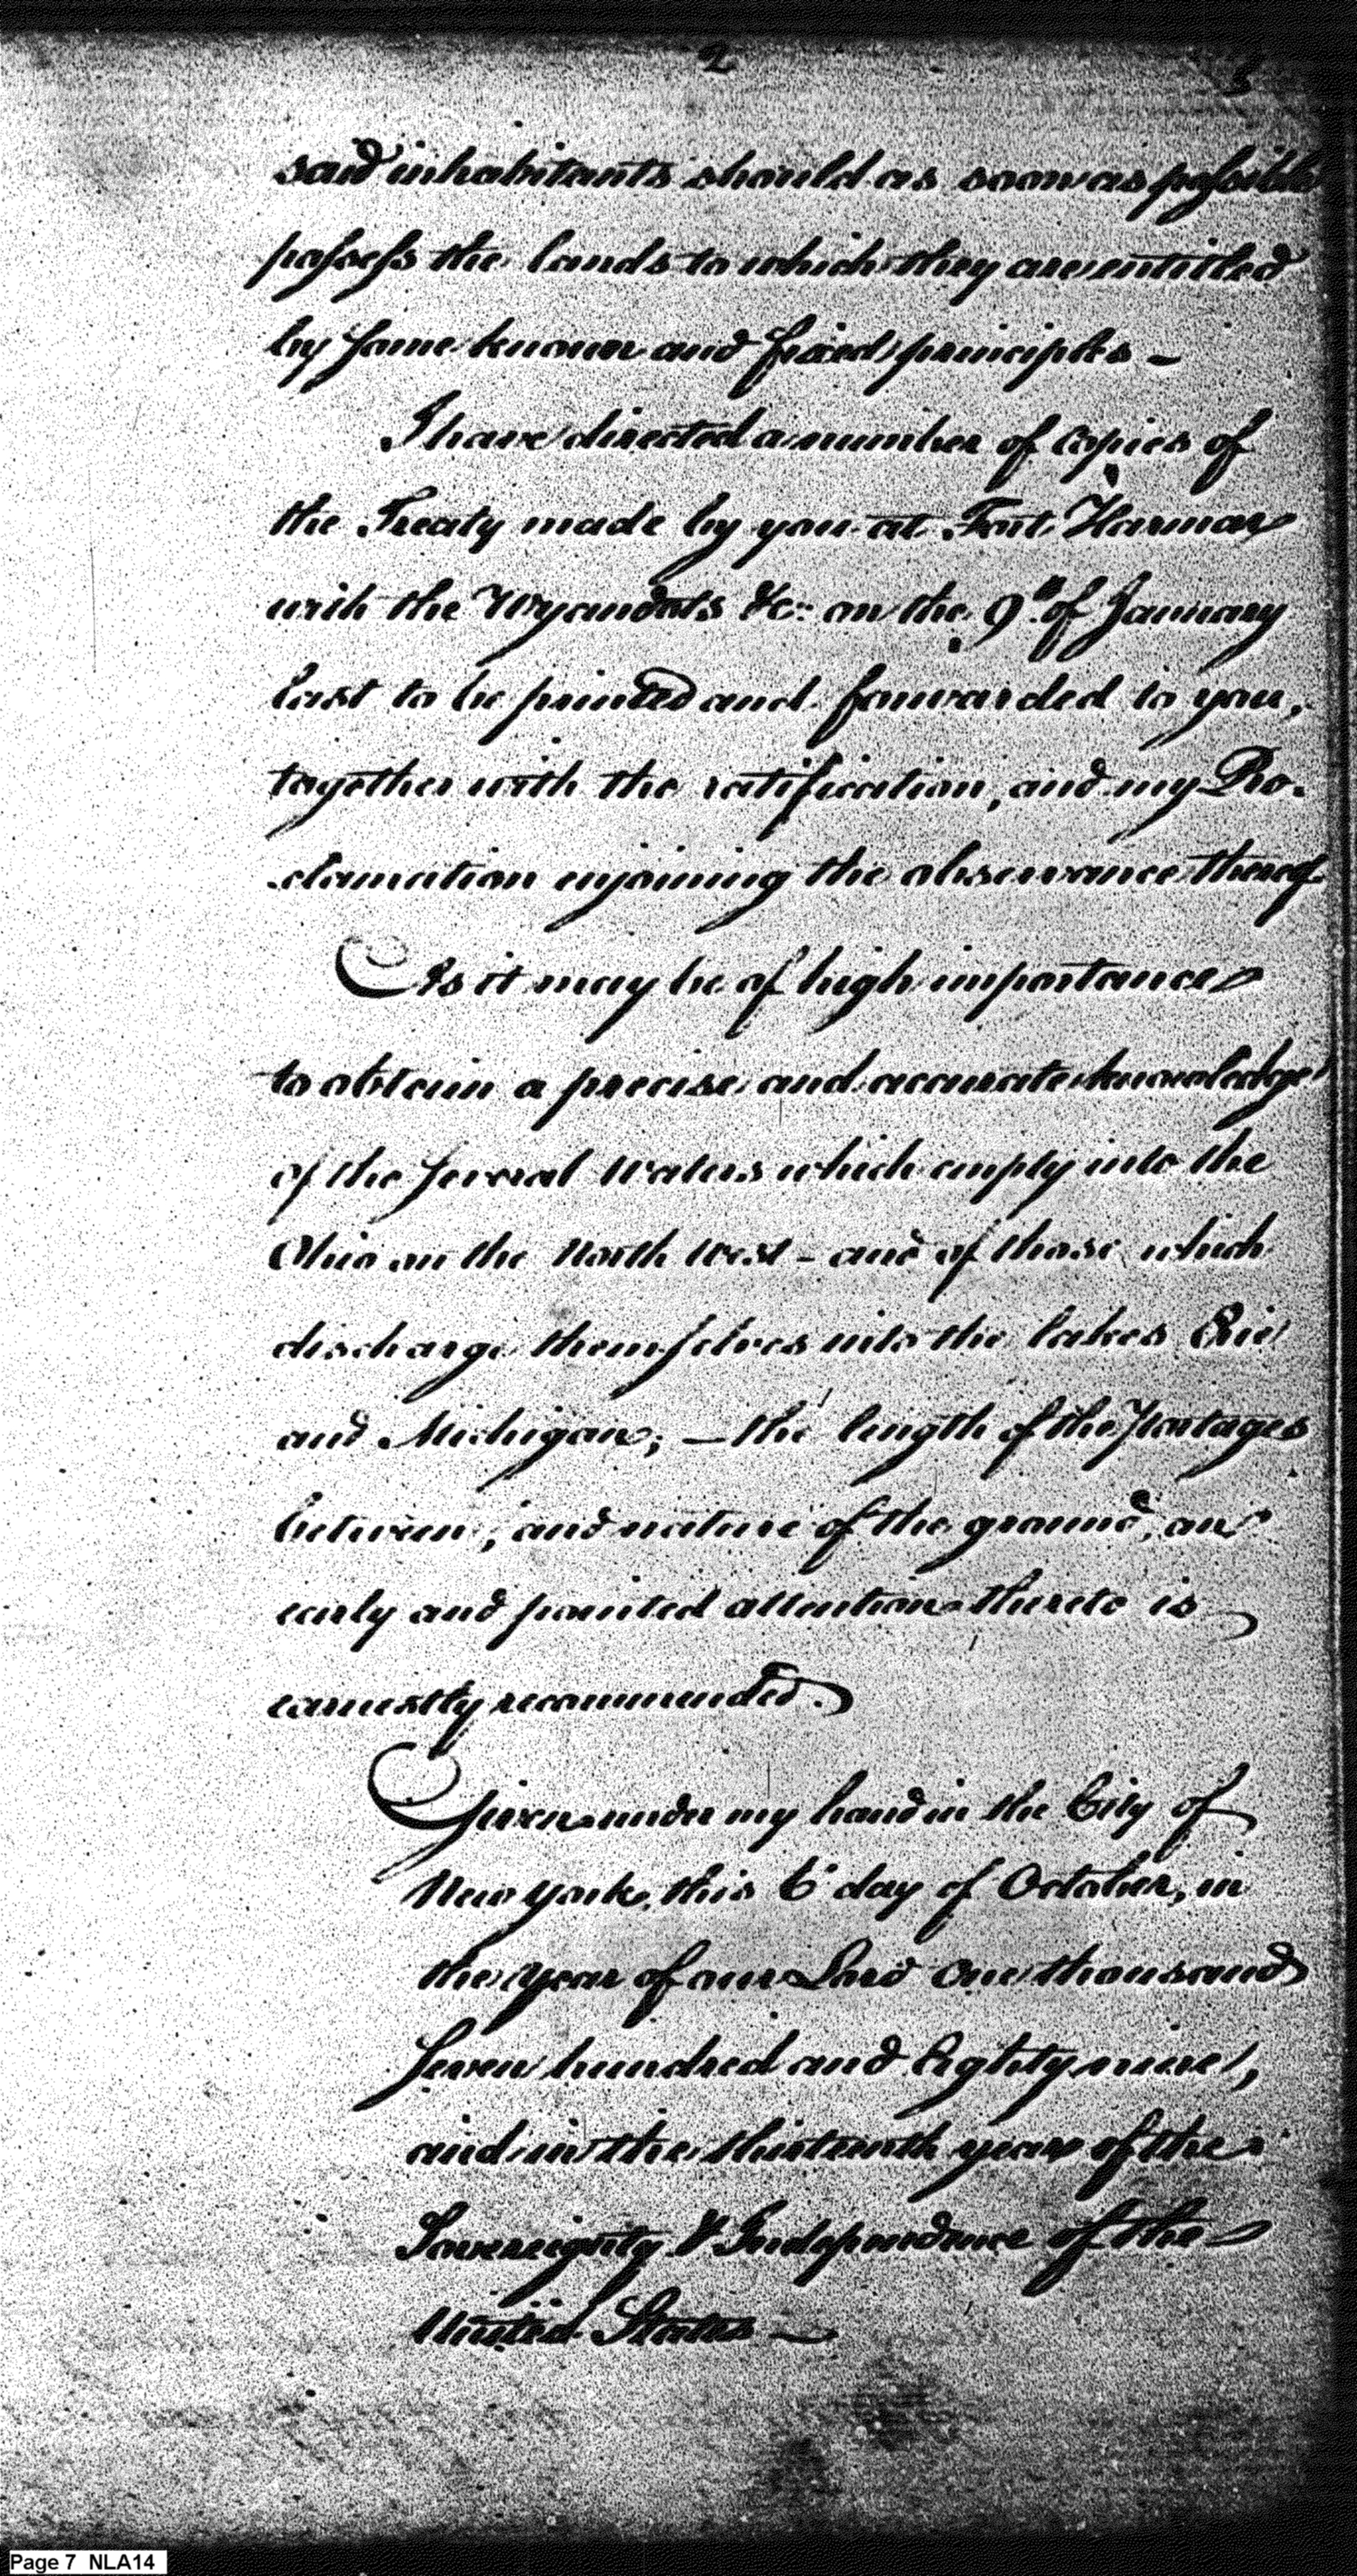 2 3
said inhabitants should as soon as possible
possess the lands to which they are entitled
by some known and fixed principles –
I have directed a number of copies of
the Treaty made by you at Fort Harmar
with the Wyandots &c: on the 9th of January
last to be printed and forwarded to you,
together with the ratification, and my Pro-
-clamation enjoining the observance thereof
As it may be of high importance
to obtain a precise and accurate knowledge
of the several Waters which empty into the
Ohio on the North West – and of those which
discharge themselves into the lakes Erie
and Michigan; – the length of the Portages
between, and nature of the ground, an
early and pointed attention thereto is
earnestly recommended.
Given under my hand in the City of
New York, this 6 day of October, in
the year of our Lord One thousand
seven hundred and Eighty nine,
and in the thirteenth year of the
Sovereignty & Independence of the
United States –
Page 7 NLA14